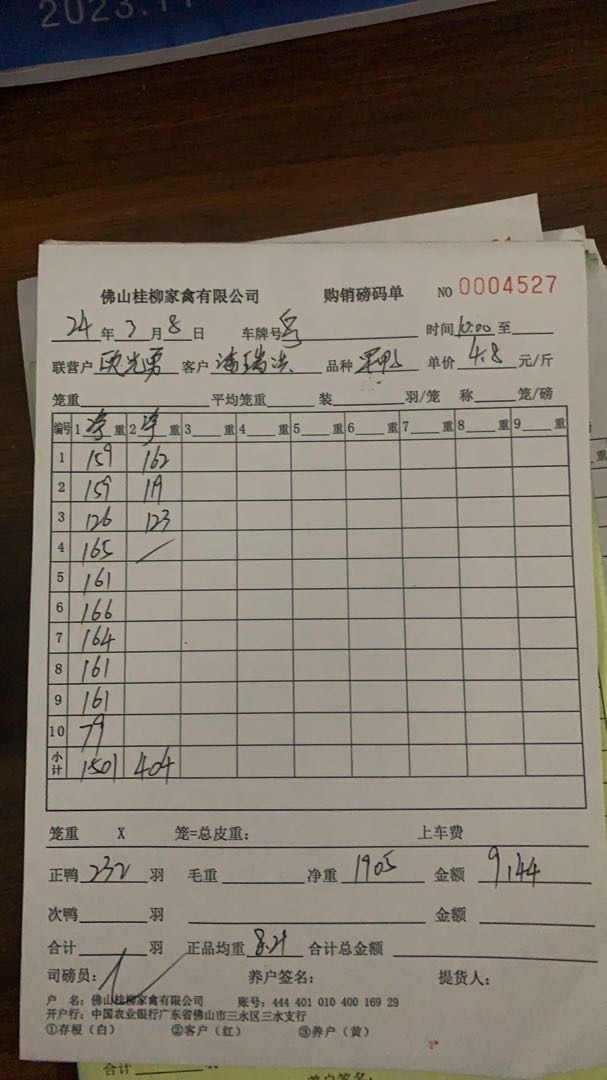 2023.11
佛山桂柳家禽有限公司 购销磅码单 NO 0004527
24年7月8日 车牌号 时间10:00至
联营户 欧光勇 客户 潘瑞洪 品种 单价 4.8 元/斤
笼重 平均笼重 装 羽/笼 称 笼/磅
编号 1 净重 2 净重 3 重 4 重 5 重 6 重 7 重 8 重 9 重
1 159 162
2 159 119
3 126 123
4 165 /
5 161
6 166
7 164
8 161
9 161
10 79
小计 1501 404
笼重 X 笼=总皮重: 上车费
正鸭 232 羽 毛重 净重 1905 金额 9144
次鸭 羽 金额
合计 羽 正品均重 8.21 合计总金额
司磅员: 养户签名: 提货人:
户 名: 佛山桂柳家禽有限公司 账号: 444 401 010 400 169 29
开户行: 中国农业银行广东省佛山市三水区三水支行
①存根（白） ②客户（红） ③养户（黄）
合计 羽
养户签名: